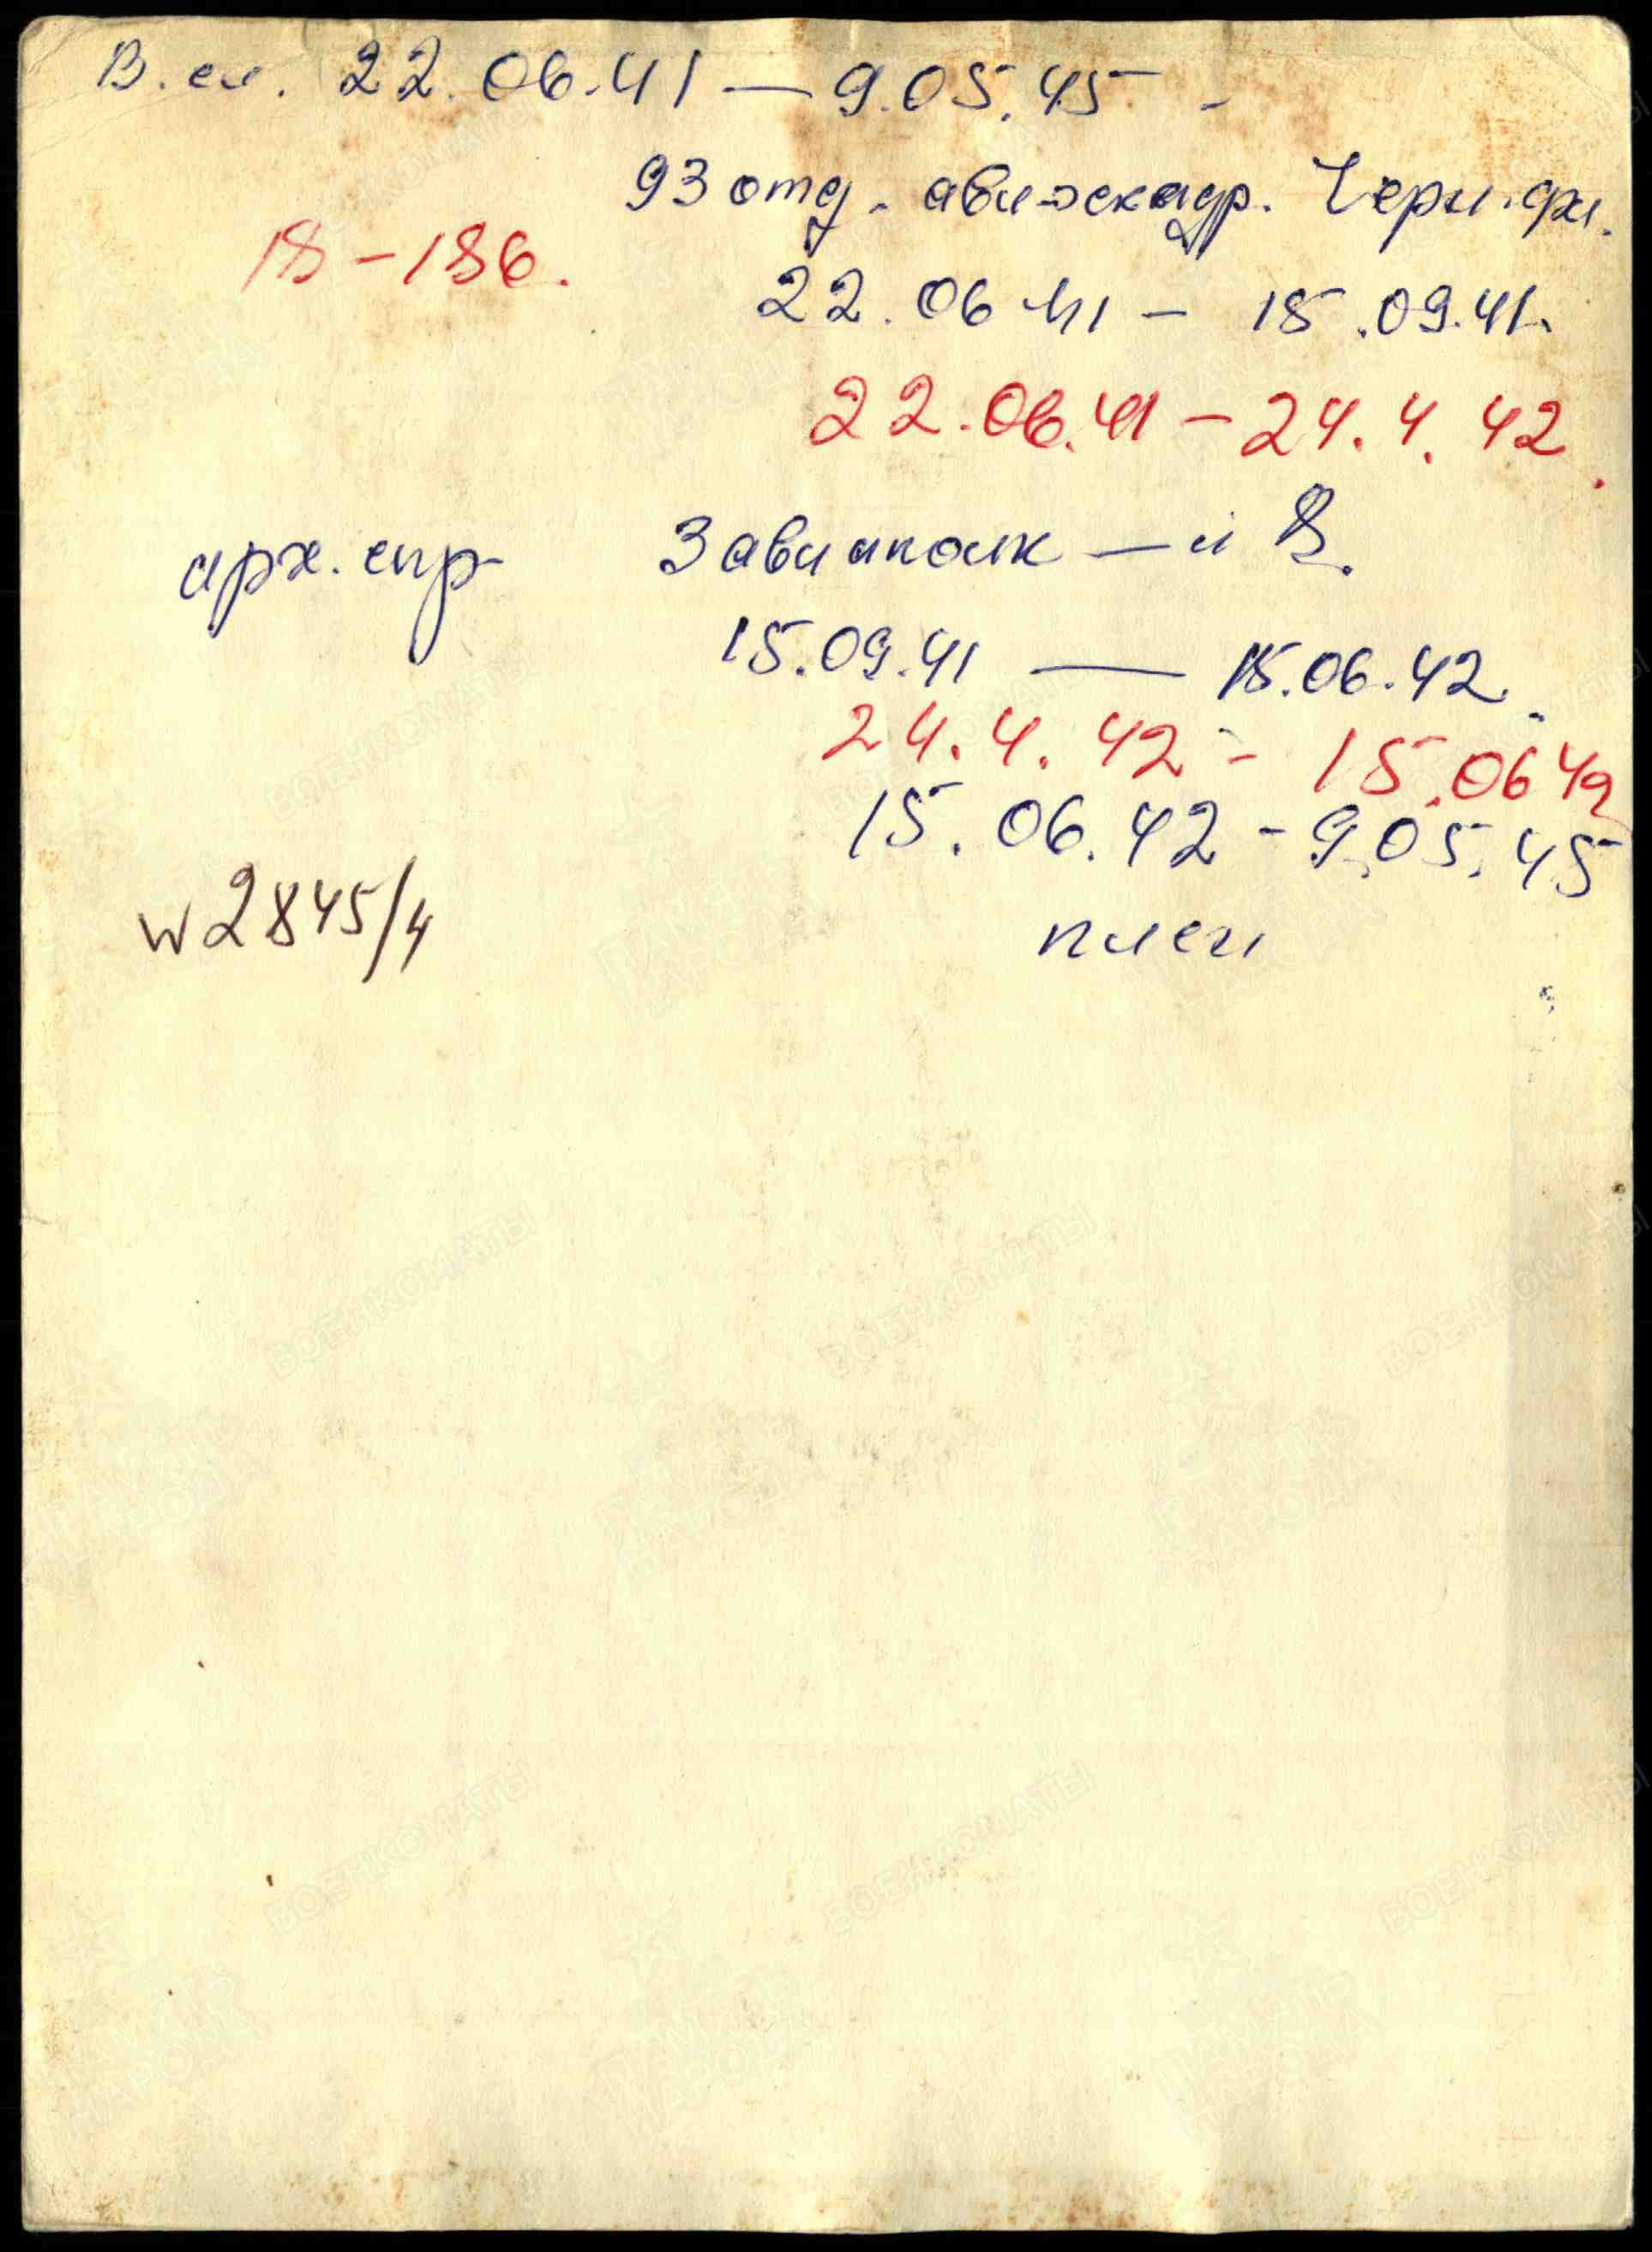 В. сл. 22.06.41 — 9.05.45 -
93 отд. авиаэскадр. Черн. фл.
18-186.
22.06 41 - 15.09.41.
22.06.41 - 24.4.42.
арх. спр. 3 авиаполк — 11
15.09.41 — 15.06.42.
24.4.42 - 15.06 42
15.06.42 - 9.05.45
w 2845/4
плен